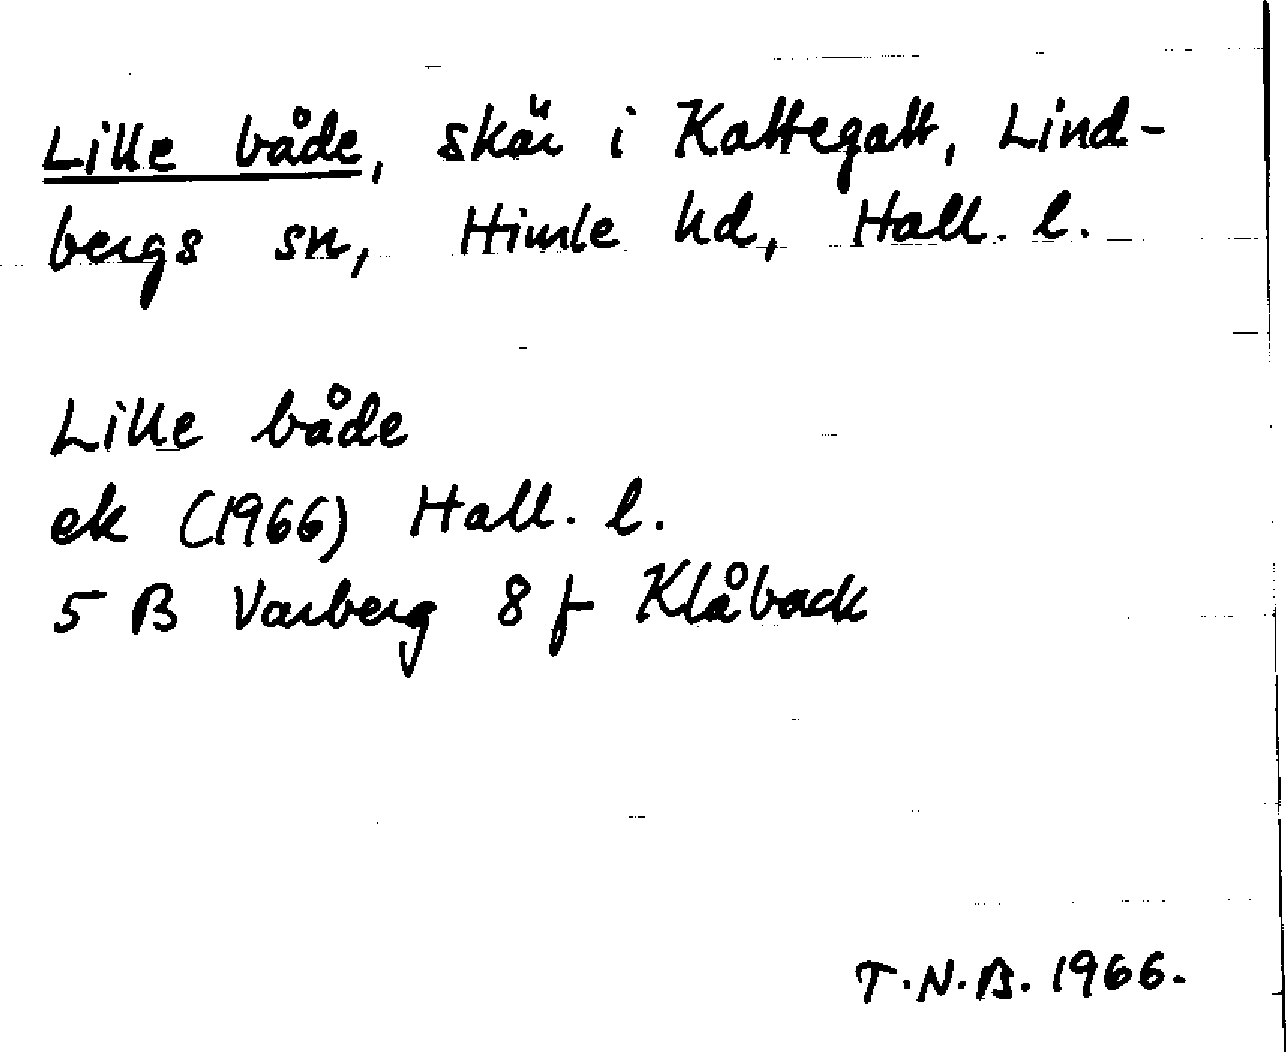 Lille både, skär i Kattegatt, Lind-
bergs sn, Himle hd, Hall. l.
Lille både
ek (1966) Hall. l.
5 B Varberg 8 f Klåback
T.N.B. 1966.